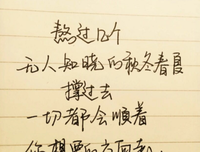 熬过几个
无人知晓的秋冬春夏
撑过去
一切都会顺着
你想要的方向走